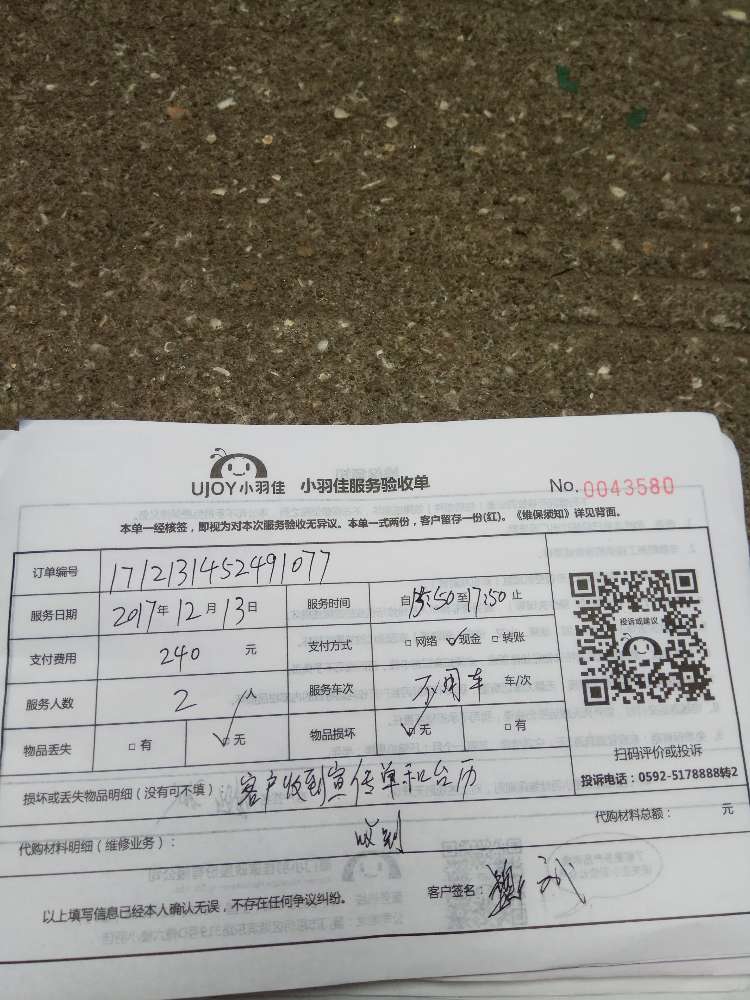 UJOY小羽佳 小羽佳服务验收单 No. 0043580
本单一经核签，即视为对本次服务验收无异议。本单一式两份，客户留存一份(红)。《维保须知》详见背面。
订单编号 1712131452491077
服务日期 2017年12月13日 服务时间 自15:50至17:50止
支付费用 240 元 支付方式 □网络 ☑现金 □转账
服务人数 2 人 服务车次 不用车 车/次
物品丢失 □有 ☑无 物品损坏 ☑无 □有
投诉或建议
扫码评价或投诉
投诉电话：0592-5178888转2
损坏或丢失物品明细（没有可不填）：客户收到宣传单和台历
代购材料明细（维修业务）： 收到 代购材料总额： 元
以上填写信息已经本人确认无误，不存在任何争议纠纷。 客户签名：